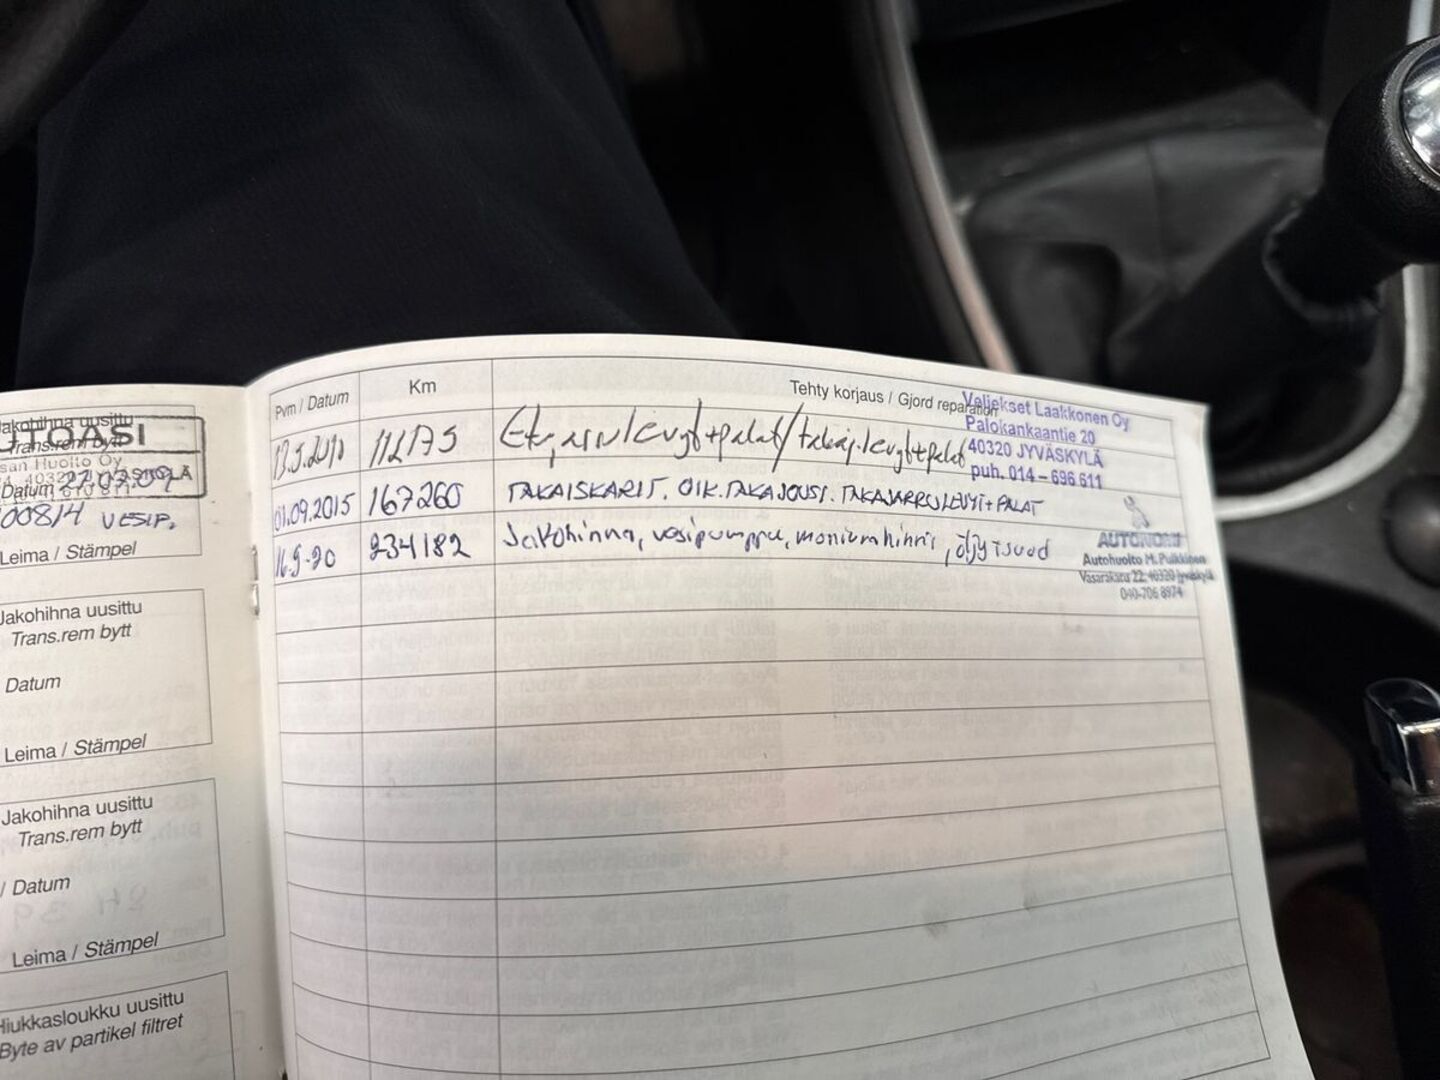 Jakohihna uusittu
Trans.rem bytt
TOASI
san Huolto Oy
Datum 22.07.09
008/4 VESIP.
Leima / Stämpel
Jakohihna uusittu
Trans.rem bytt
Datum
Leima / Stämpel
Jakohihna uusittu
Trans.rem bytt
/ Datum
Leima / Stämpel
Hiukkasloukku uusittu
Byte av partikel filtret
Pvm / Datum Km Tehty korjaus / Gjord reparation
Veljekset Laakkonen Oy
Palokankaantie 20
40320 JYVÄSKYLÄ
puh. 014 – 696 611
Etujarrulevyt+palat/takaj.levyt+palat
01.09.2015 167260 TAKAISKARIT. OIK.TAKAJOUSI. TAKAJARRULEVYT+PALAT
16.9-20 234182 Jakohinna, vesipumppu, moniurahinna, öljytsuod
AUTONOMI
Autohuolto M. Pulkkinen
Vasarakatu 22, 40320 Jyväskylä
040-706 8974